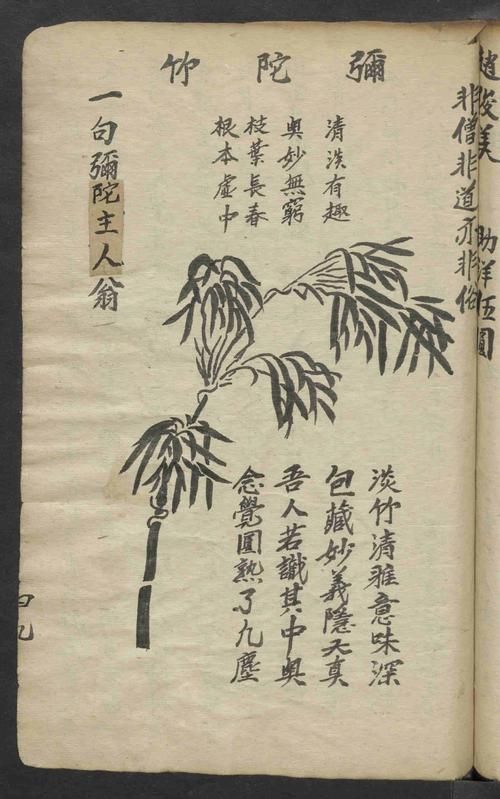 趙俊美　助洋伍圓
非僧非道亦非俗
彌陀竹
清淡有趣
奥妙無窮
枝葉長春
根本虛中
一句彌陀主人翁
淡竹清雅意味深
包藏妙義隱天真
吾人若識其中奧
念覺圓熟了凡塵
四九